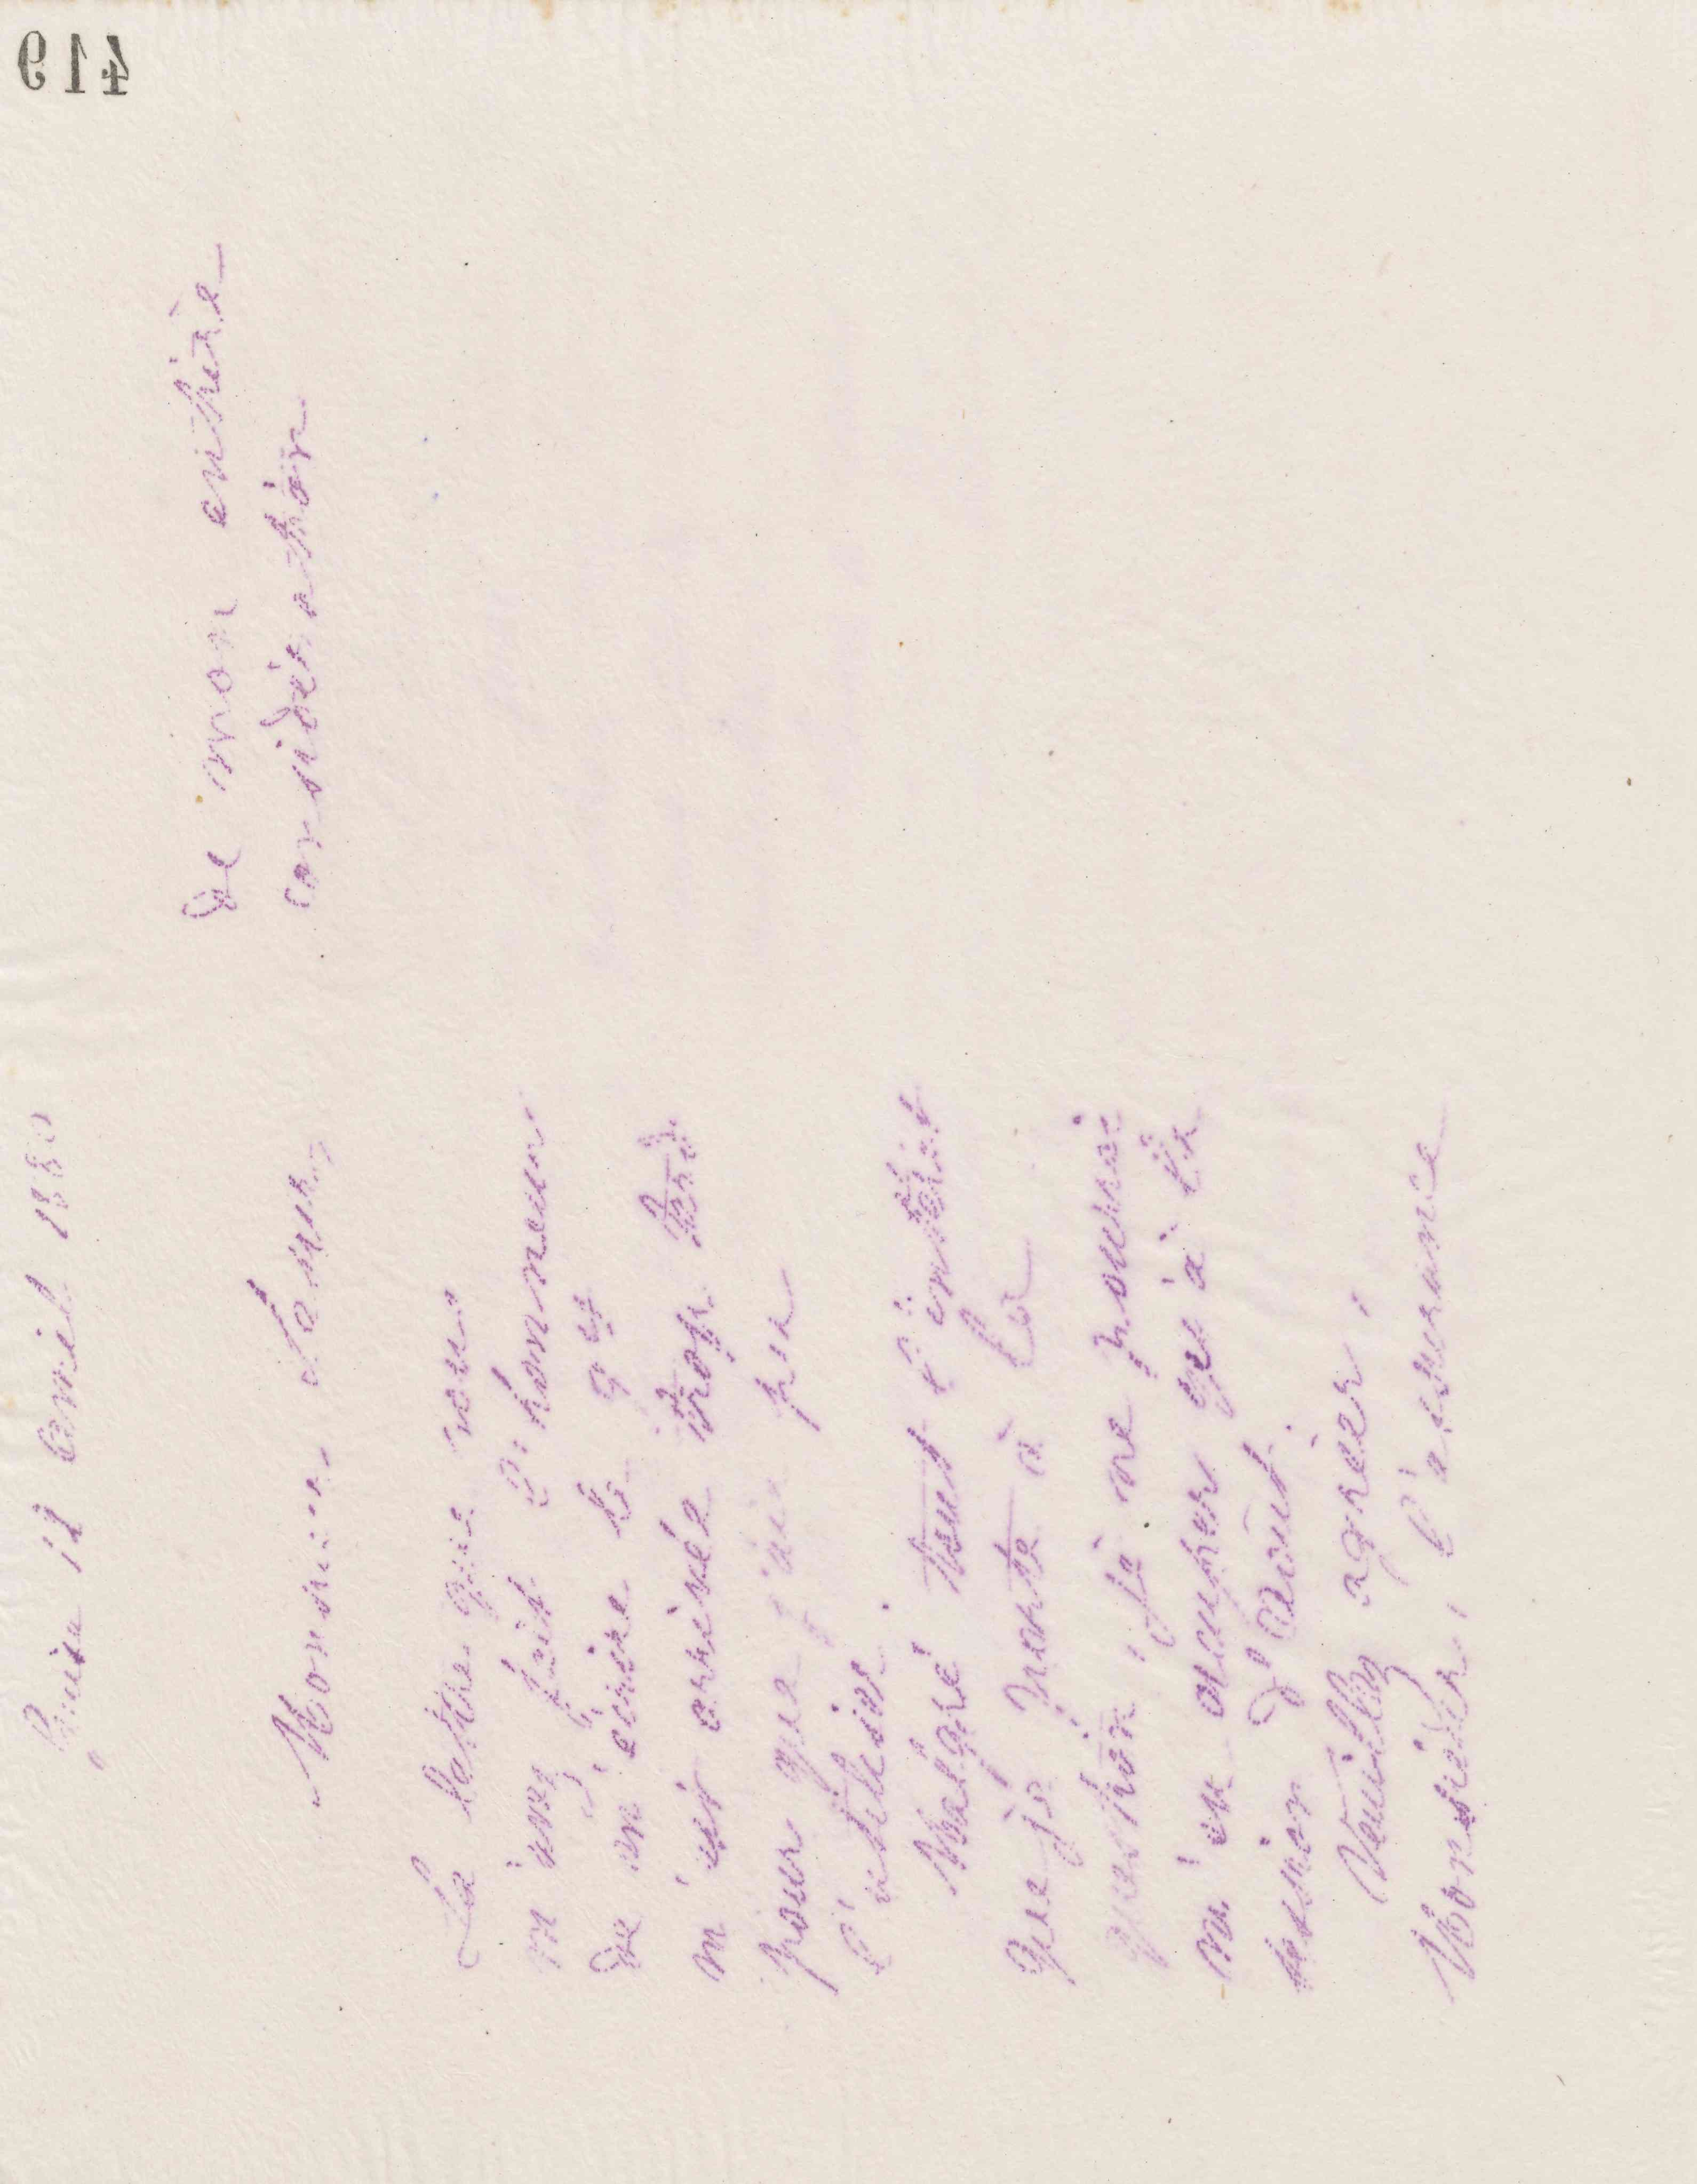 419
12 Avril 1880
Monsieur
La lettre que vous
m'avez fait l'honneur
de m'écrire le 9 et
m'est arrivée trop tard
pour que j'aie pu
l'utiliser.
Malgré tout l'intérêt
que je porte à la
question, je ne pourrai
m'en occuper qu'à la
session d'Août.
Veuillez agréer,
Monsieur, l'assurance
de mon entière
considération